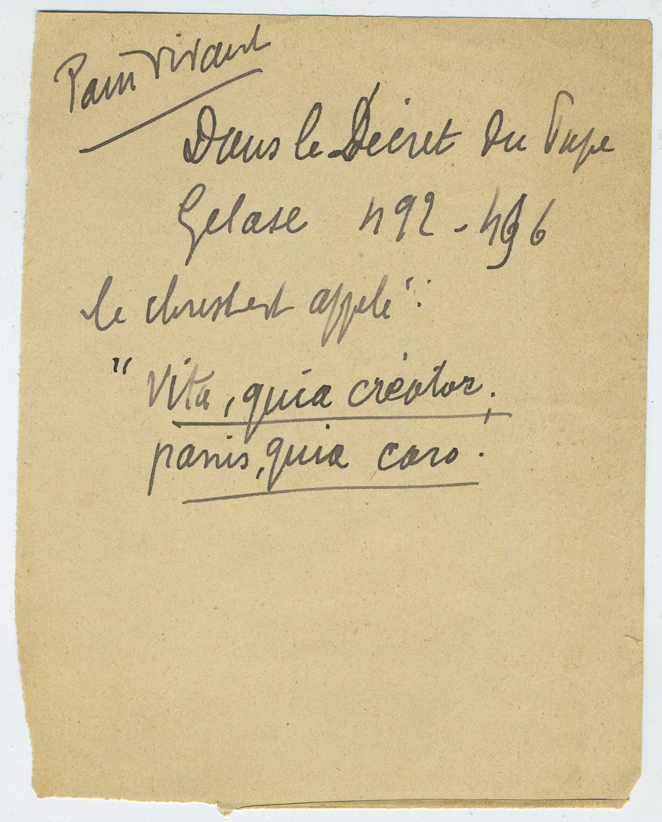 Pain vivant
Dans le Décret du Pape
Gelase 492 - 496
le christ est appelé :
" Vita, quia créator;
panis, quia caro.